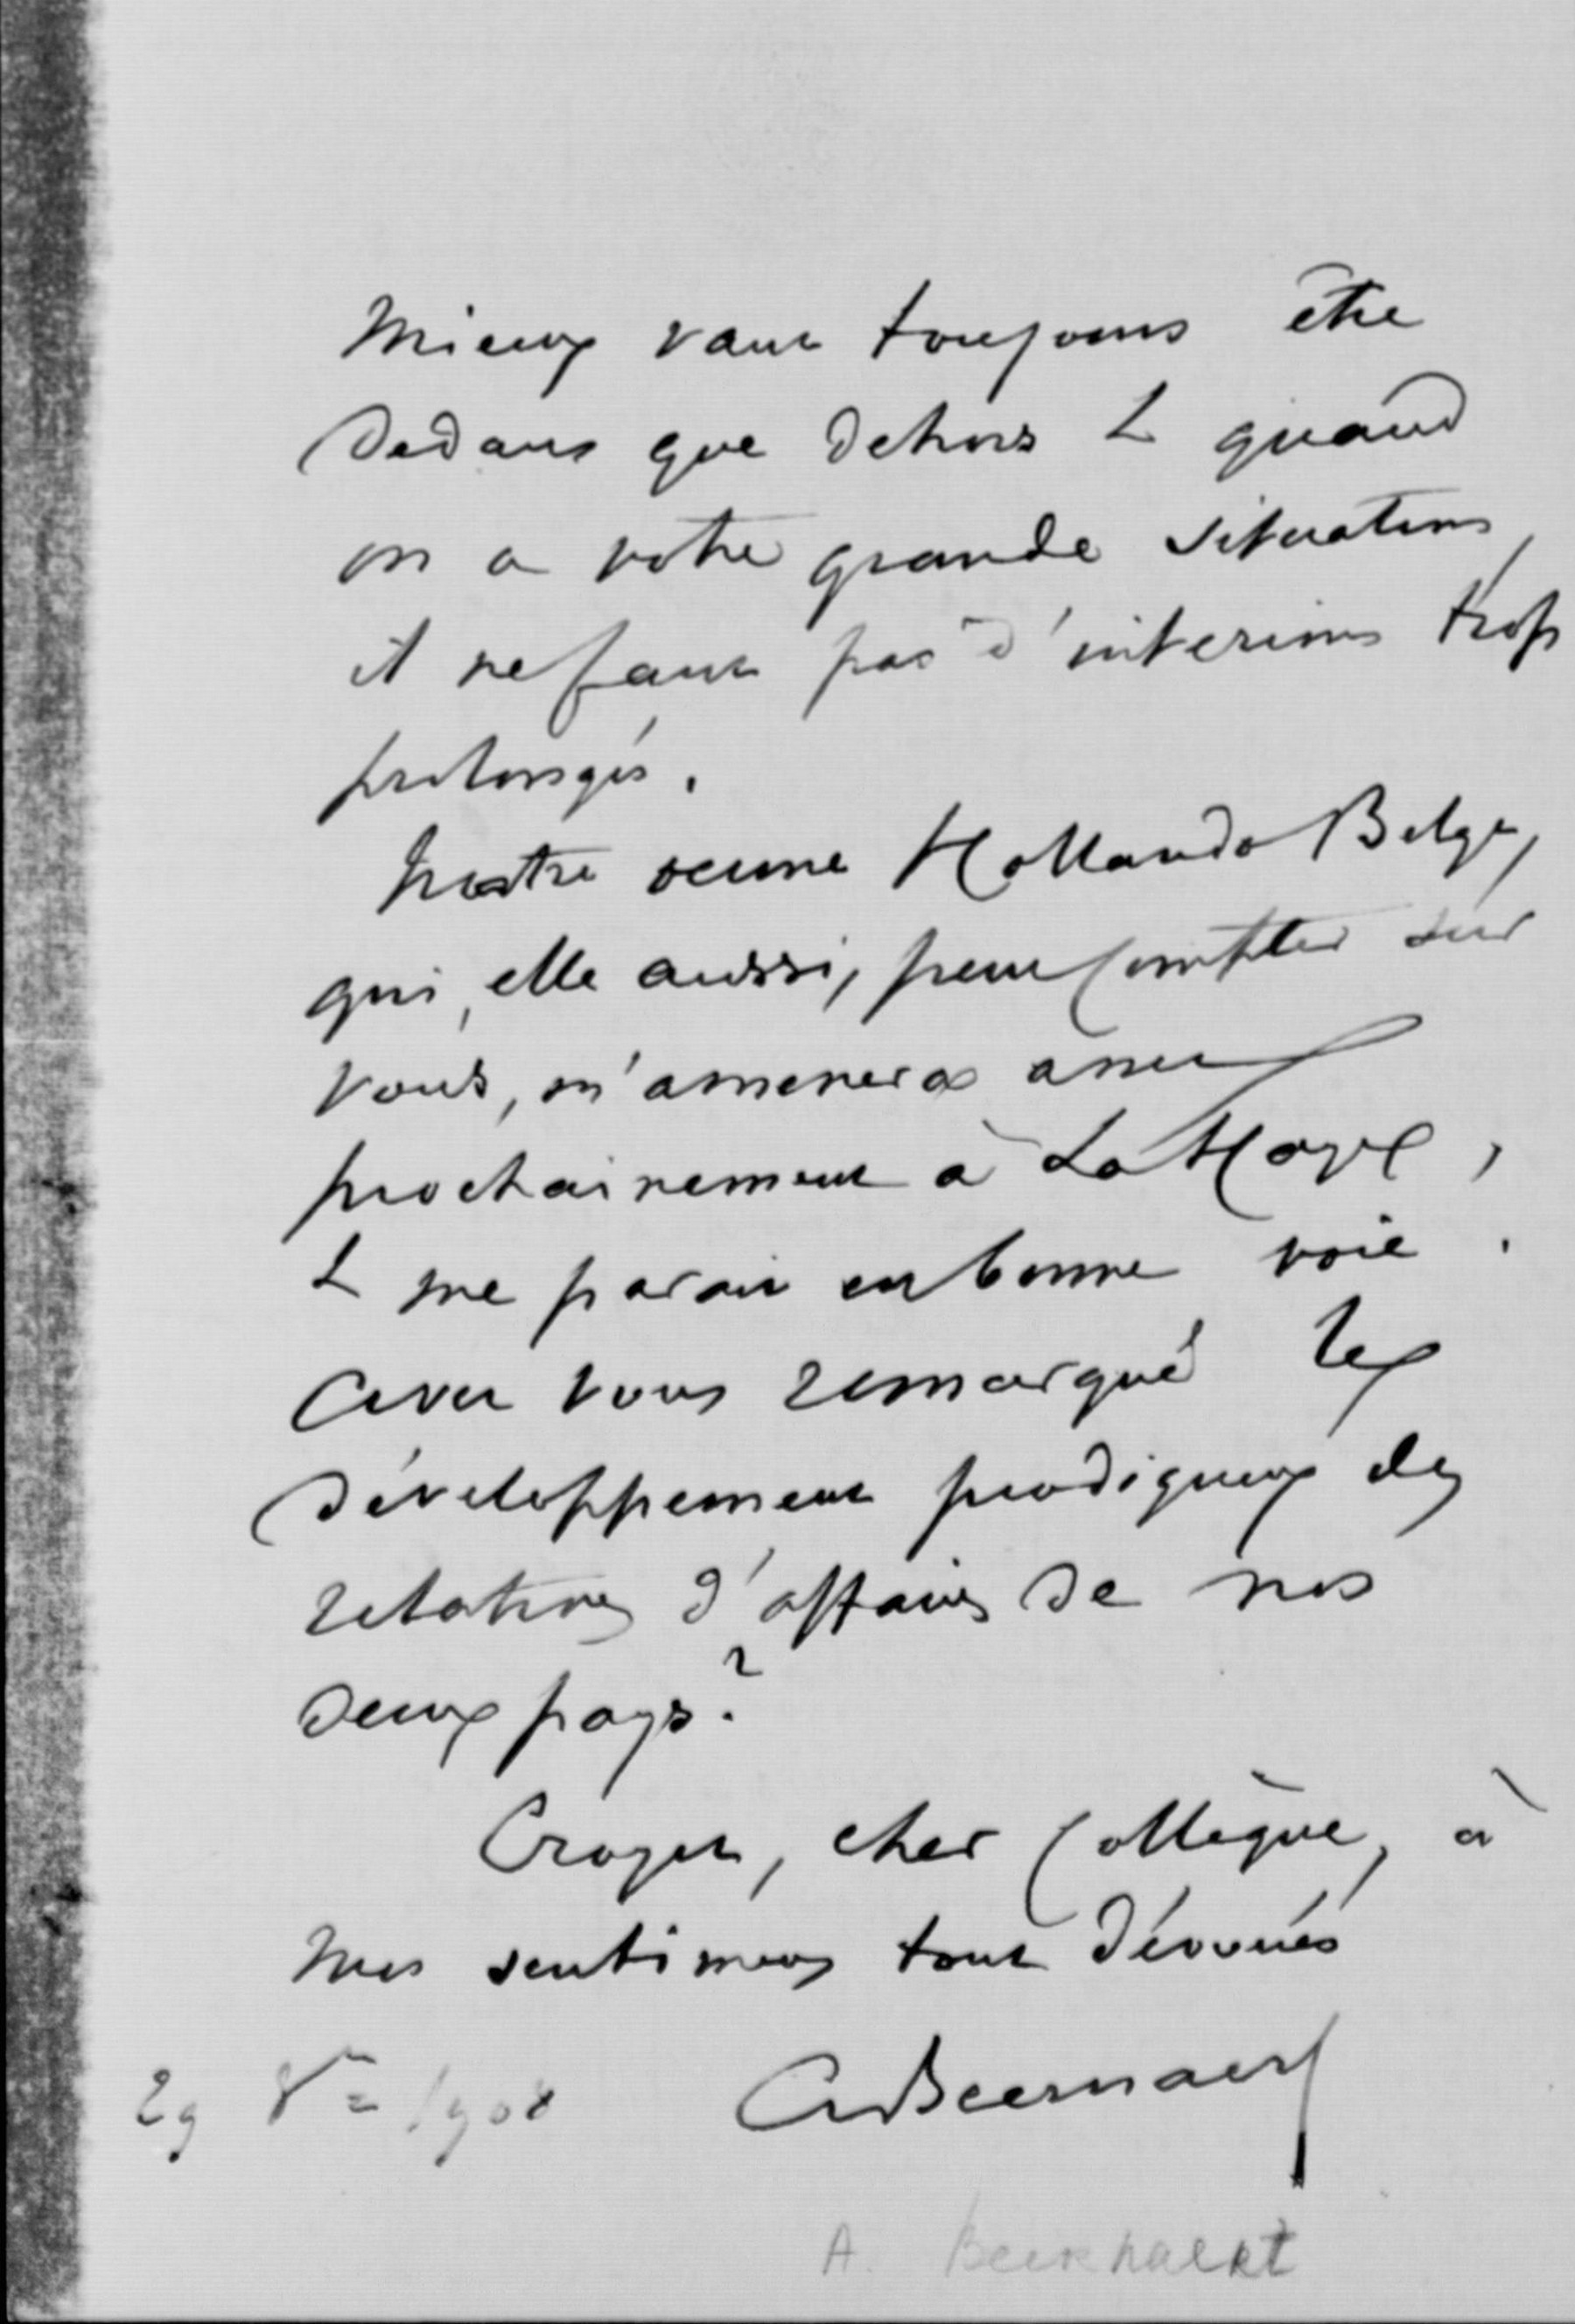 Mieux vaut toujours être
dedans que dehors & quand
on a votre grande situation,
il ne faut pas d'interims trop
prolongés.
Notre œuvre Hollando Belge,
qui, elle aussi, peut compter sur
vous, m'amenera assez
prochainement à La Haye,
& me parait en bonne voie.
Avez vous remarqué le
développement prodigieux des
relations d'affaires de nos
deux pays?
Croyez, cher Collègue, à
mes sentimens tout dévoués
29 8re 1908
ABeernaert
A. Beernaert